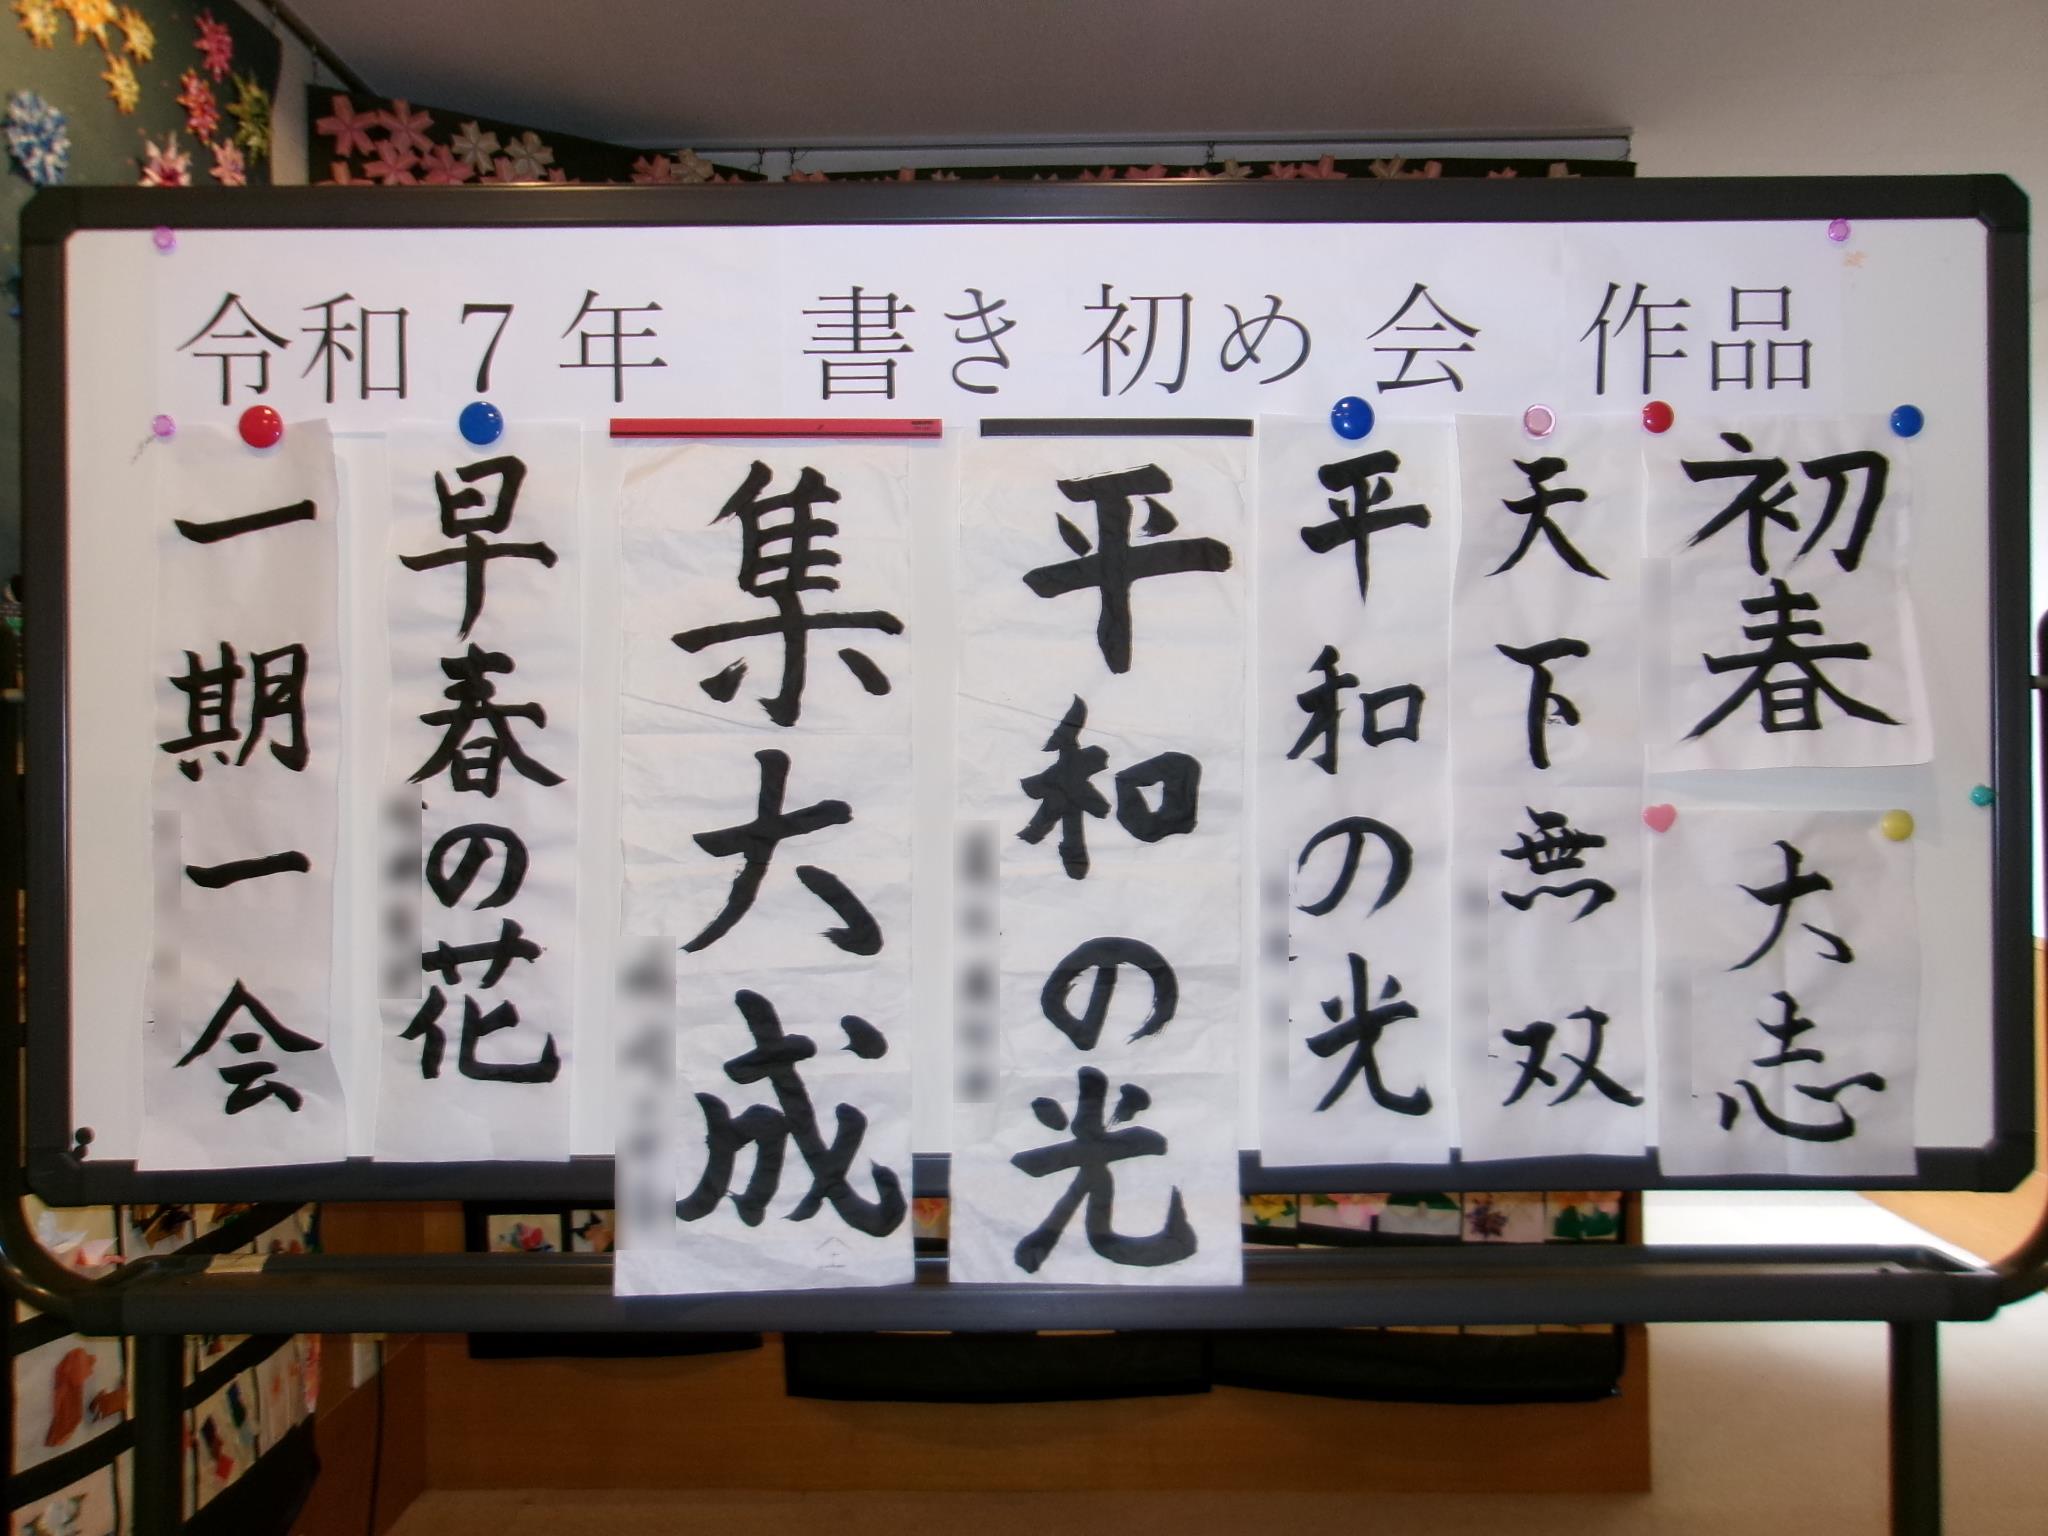 令和7年 書き初め会 作品
初春
大志
天下無双
平和の光
平和の光
集大成
早春の花
一期一会